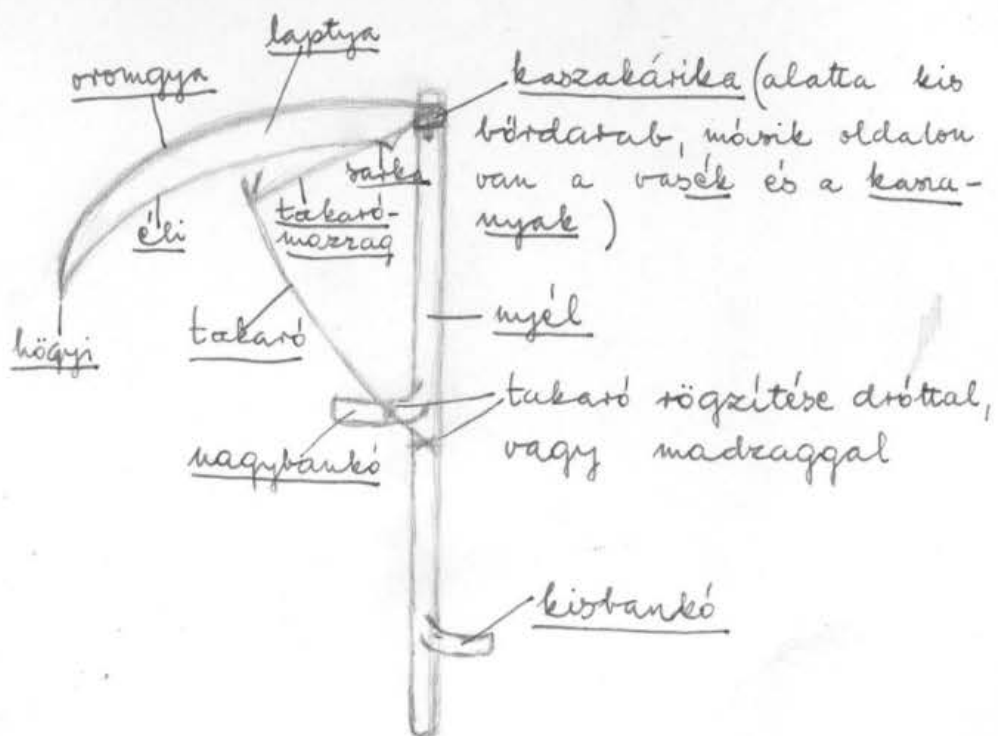 laptya
oromgya
kaszakárika (alatta kis
bőrdarab, másik oldalon
van a vasék és a kasza-
nyak)
sarka
takaró-
mazzag
éli
nyél
takaró
högyi
takaró rögzítése dróttal,
vagy madzaggal
nagybankó
kisbankó